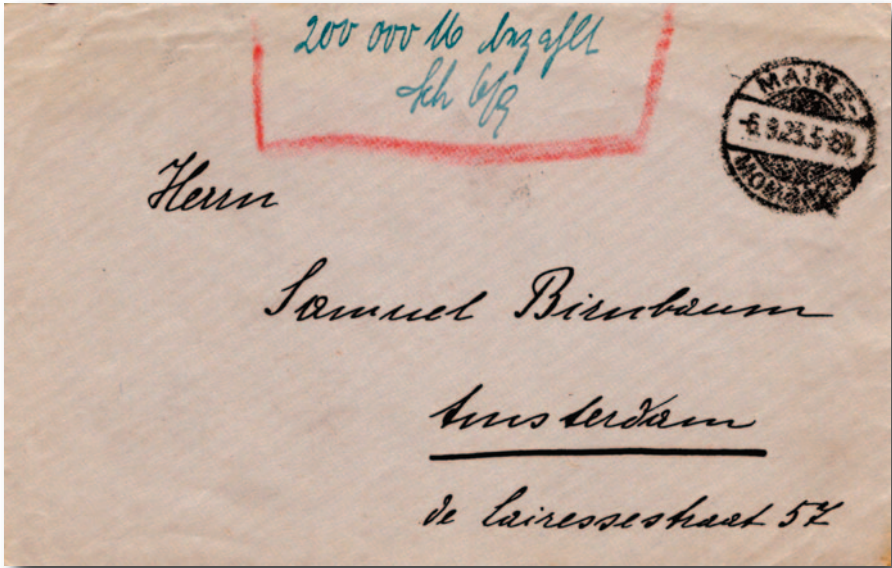 200 000 M bezahlt
Sch 6/9
MAINZ-
-6.9.23.5-6N.
MOMBACH
Herrn
Samuel Birnbaum
Amsterdam
de Lairessestraat 57